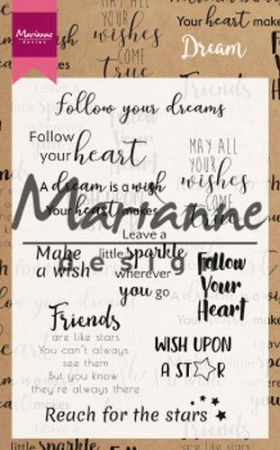 Marianne
design
May all
your
wishes
come
true
Your heart makes
Dream
Follow your dreams
Follow
your heart
MAY ALL
YOUR
wishes
COME
A dream is a wish
Your heart makes
Marianne
design
Leave a
little sparkle
wherever
you go
Make
a wish
Follow
Your
Heart
Friends
are like stars
You can't always
see them
But you know
they're always there
WISH UPON
A ST☆R
Reach for the stars